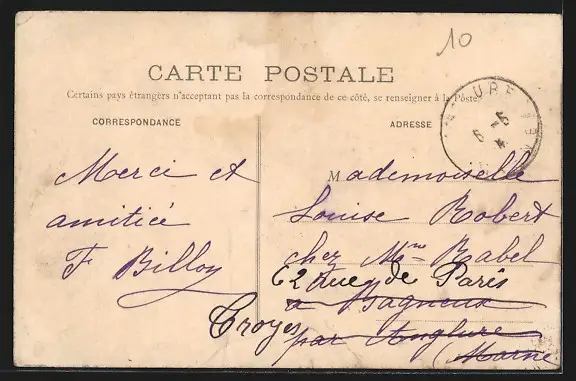 10
CARTE POSTALE
Certains pays étrangers n'acceptant pas la correspondance de ce côté, se renseigner à la Poste
CORRESPONDANCE
Merci et
amitiée
F Billoy
ADRESSE
URE
6 - 5
Mademoiselle
Louise Robert
chez Mme Rabel
62 rue de Paris
a Bagneux
Troyes par Anglure
(Marne